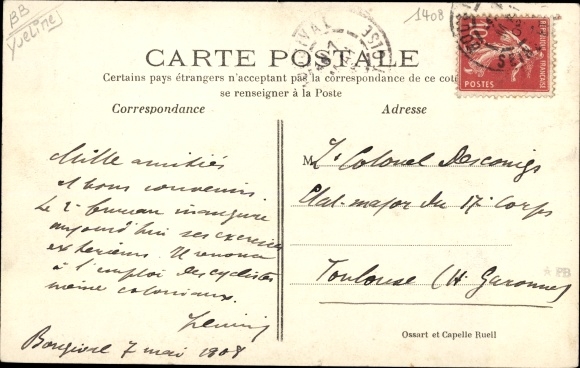 BB
Yveline
1408
CARTE POSTALE
Certains pays étrangers n'acceptant pas la correspondance de ce coté
se renseigner à la Poste
Correspondance
Adresse
Mille amitiés
et bons souvenirs.
Le 2e bureau inaugure
aujourd'hui ses exercices
extérieurs. Il renonce
à l'emploi des cyclistes
même coloniaux.
Bougival 7 mai 1908
M Lt Colonel
Etat-major du 17e Corps
Toulouse (Hte Garonne)
Ossart et Capelle Rueil
10
POSTES
REPUBLIQUE FRANÇAISE